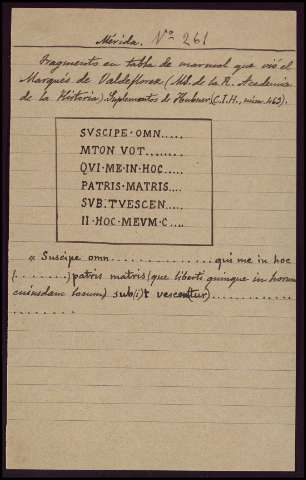 Mérida. Nº 261
Fragmento en tabla de marmol que vió el
Marqués de Valdeflores (Ms. de la R. Academia
de la Historia). Suplementos de Hubner (C.I.H., núm. 463).
SVSCIPE·OMN.....
MTON VOT........
QVI·ME·IN·HOC.....
PATRIS·MATRIS....
SVB·TVESCEN.....
II·HOC·MEVM·C....
« Suscipe omn.................. qui me in hoc
(........) patris matris (que liberti quinque in horum
cuiusdam locum) sub(i)t vescuntur)...............
............